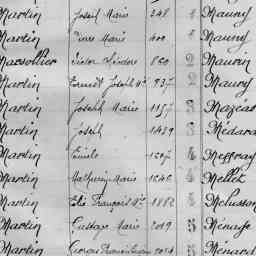 Martin Joseph Marie 348 1 Mauny
Martin Pierre Marie 400 1 Mauny
Marsollier Victor Isidore 860 2 Maurin
Martin Ernest Joseph Mie 937 2 Maury
Martin Joseph Marie 1157 3 Mazéas
Martin Joseph 1439 3 Médard
Martin Emile 1507 4 Meffray
Martin Mathurin Marie 1646 4 Mellet
Martin Elie François Mie 1882 4 Melusson
Martin Gustave Marie 2019 5 Ménage
Martin 5 Ménard